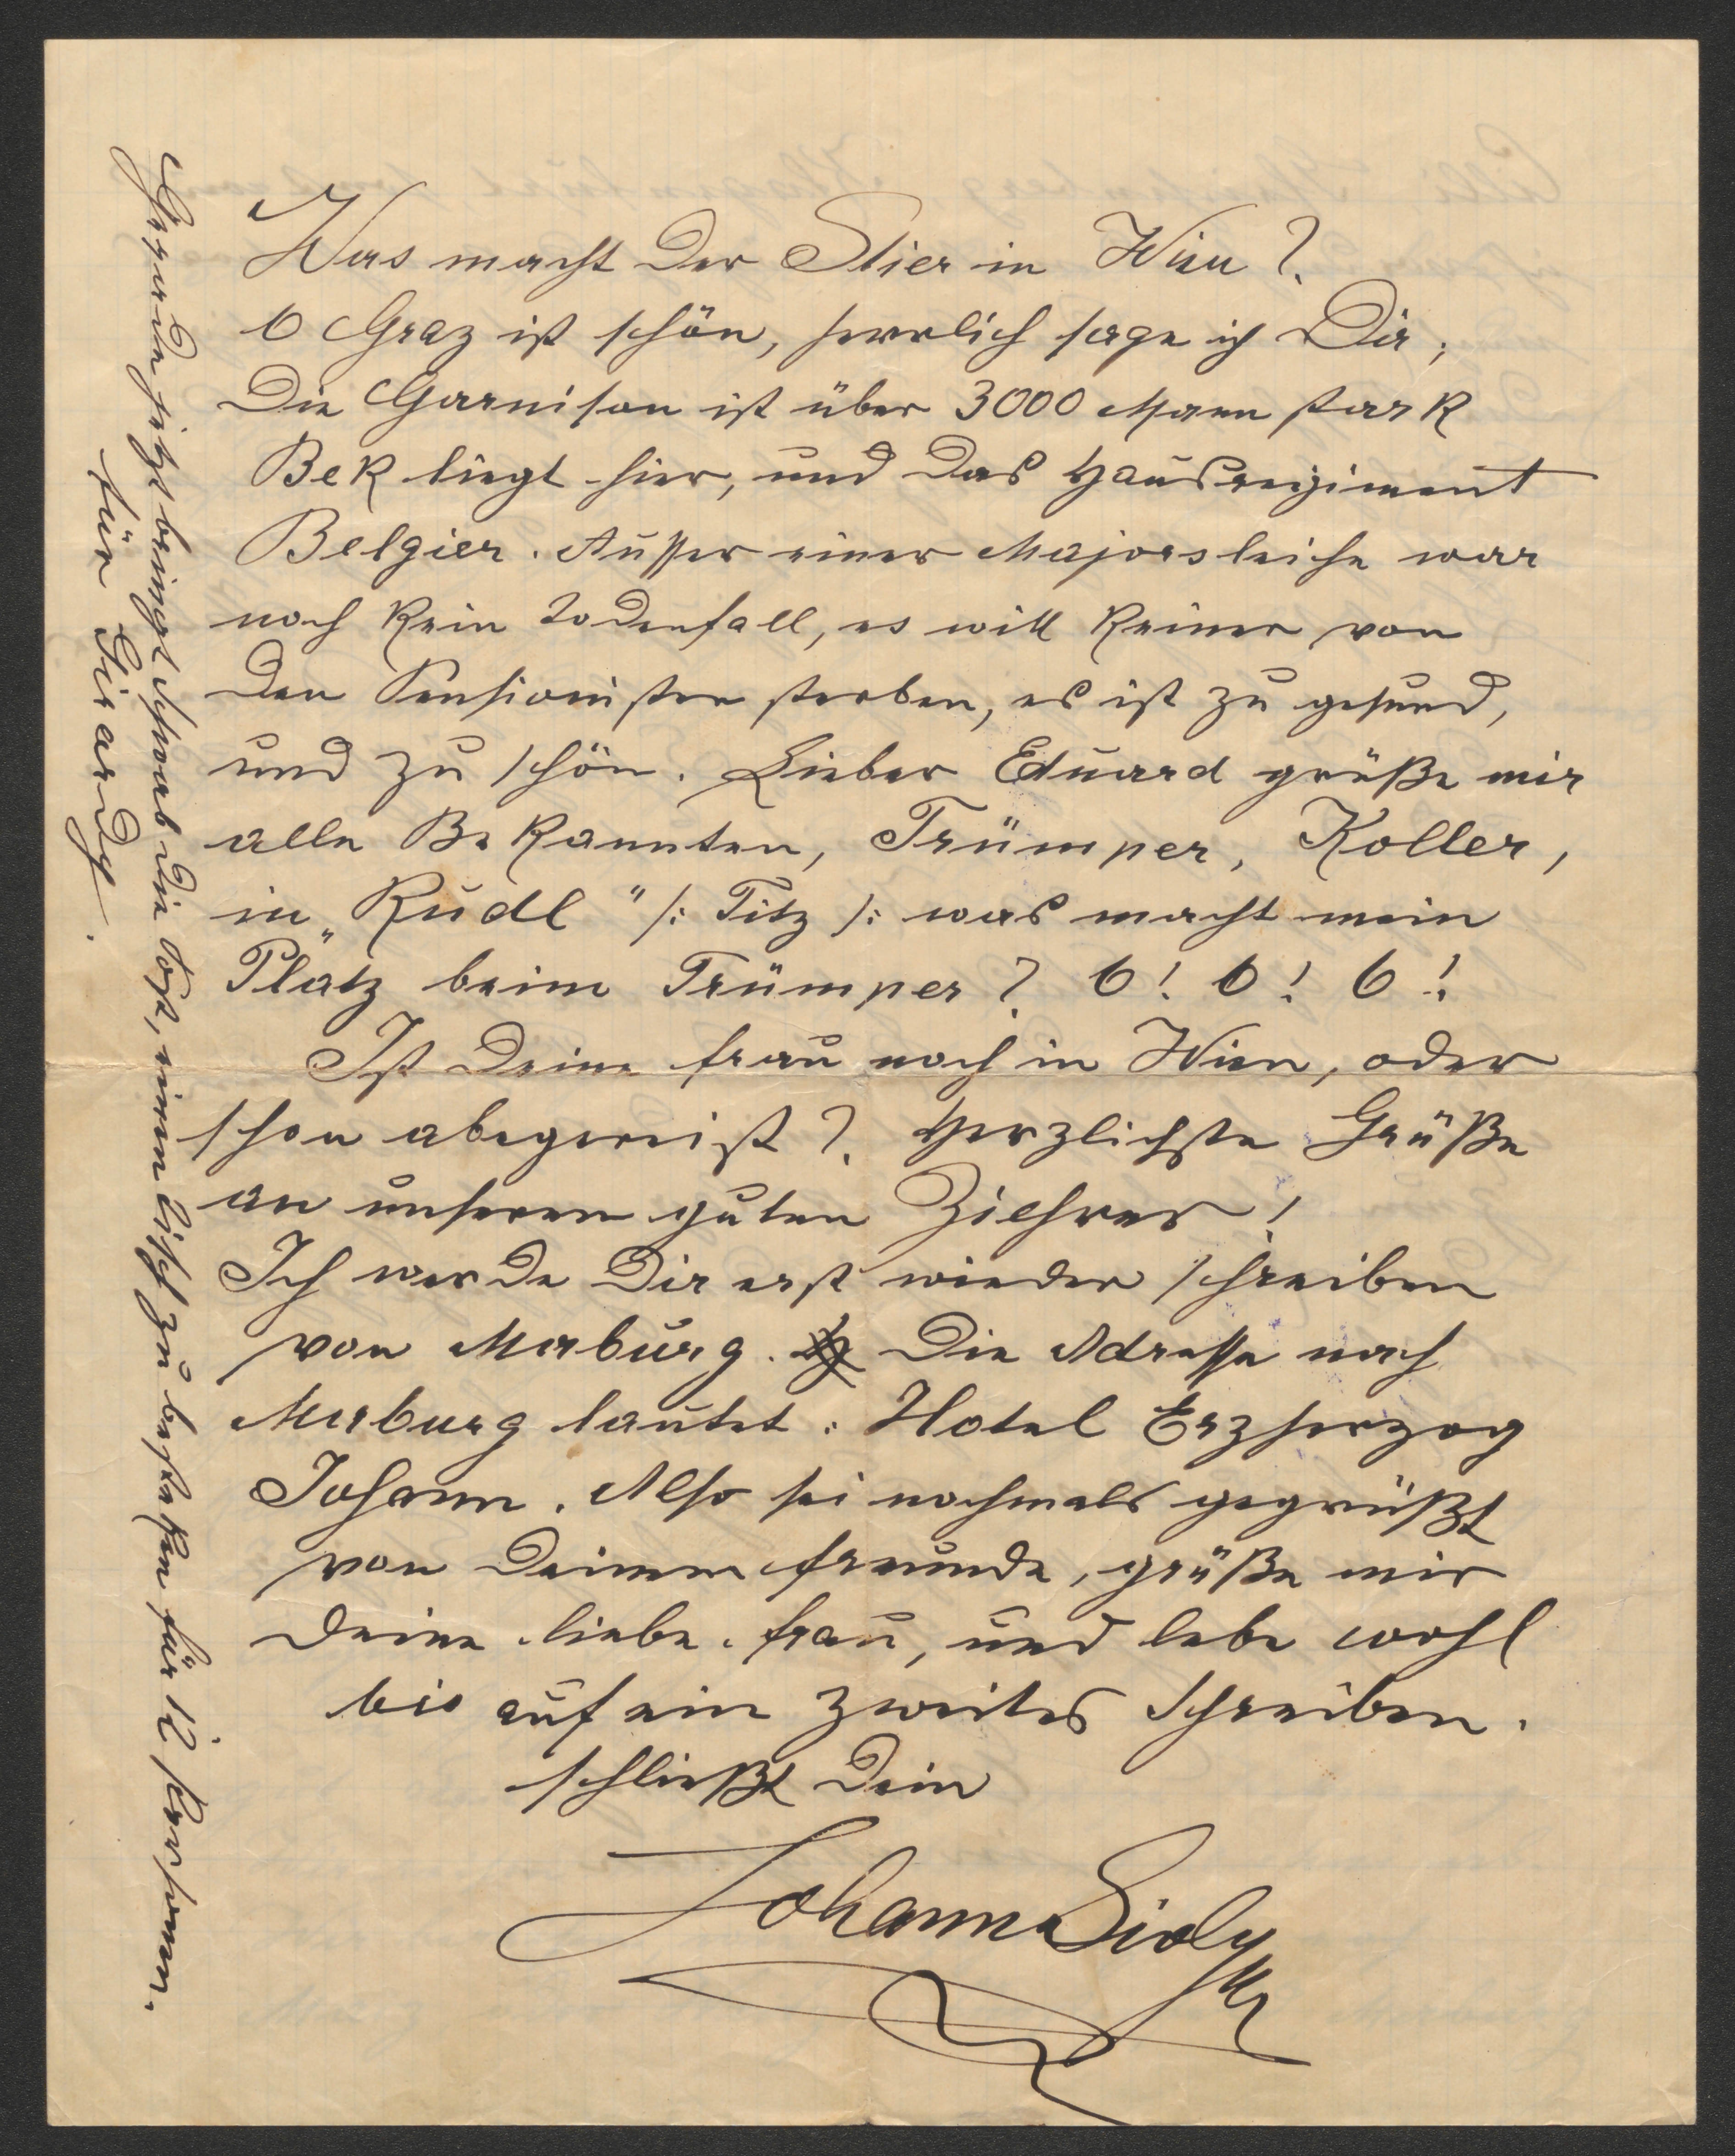 Was macht der Stier in Wien?
O Graz ist schön, herrlich sage ich Dir,
Die Garnison ist über 3000 Mann stark
Bek liegt hier, und das Hausregiment
Belgier. Ausser einer Majorsleiche war
noch kein Todenfall, es will keiner von
den Pensionisten sterben, es ist zu gesund,
und zu schön. Lieber Eduard grüße mir
alle Bekannten, Trümper, Koller,
in „Rudl" /: Titz /: was macht mein
Platz beim Trümper? O! O! O!
Ist Deine Frau noch in Wien, oder
schon abegereist? Herzlichste Grüße
an unseren guten Ziehrer!
Ich werde Dir erst wieder schreiben
von Marburg. Die Adresse nach
Marburg lautet: Hotel Erzherzog
Johann. Also sei nochmals gegrüßt
von Deinem Freunde, grüße mir
Deine liebe Frau, und lebe wohl
bis auf ein zweites Schreiben.
schließt Dein
Johann Sioly
Gerade jetzt bringt Schwab die Post, einen Tisch zu bestellen für 12 Personen.
für Girardy.